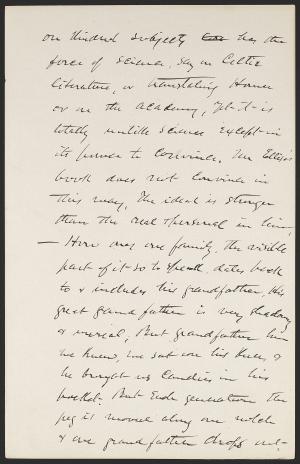 on kindred subjects has the
force of science, say on Celtic
Literature, or translating Homer
or on the Academy, Yet it is
totally unlike science except in
its power to convince. Mr Ellis's
book does not convince in
this way. The ideal is stronger
than the real & personal in him.
— How may one family, the visible
part of it so to speak, dates back
to & includes his grandfather. His
great grandfather is very shadowy
& unreal, But grandfather him
we knew, we sat on his knee, &
he brought us Candies in his
pocket. But Each generation the
peg is moved along one notch
& one grandfather drops out